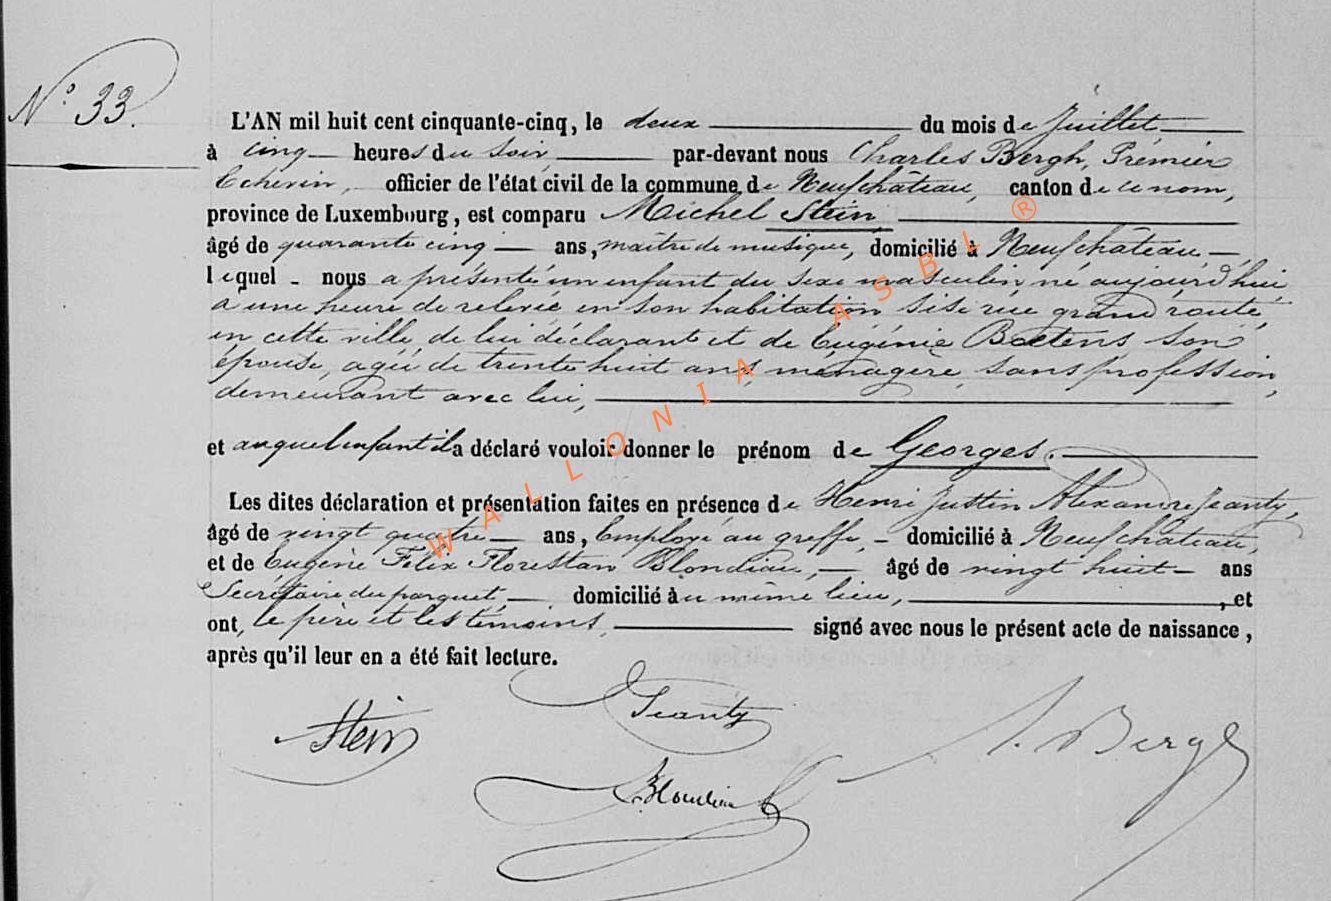 N.° 33.
L'AN mil huit cent cinquante-cinq, le deux du mois de Juillet
à cinq heures du soir, par-devant nous Charles Bergh, Prémier
Echevin, officier de l'état civil de la commune de Neufchâteau, canton de ce nom,
province de Luxembourg, est comparu Michel Stein
âgé de quarante cinq ans, maître de musique, domicilié à Neufchâteau,
lequel nous a présenté un enfant du sexe masculin, né aujourd'hui
à une heure de relevée en son habitation sise rue grand route,
en cette ville, de lui déclarant et de Eugénie Baetens son
épouse, agée de trente huit ans, ménagère, sans profession,
demeurant avec lui,
et auquel enfant il a déclaré vouloir donner le prénom de Georges.
Les dites déclaration et présentation faites en présence de Henri Justin Alexandre Jeanty,
âgé de vingt quatre ans, Employé au greffe, domicilié à Neufchâteau,
et de Eugène Félix Florestan Blondiau, âgé de vingt huit ans
Secrétaire du parquet, domicilié au même lieu, , et
ont, le père et les témoins, signé avec nous le présent acte de naissance,
après qu'il leur en a été fait lecture.
Stein
Jeanty
Blondiau
Bergh
WALLONIA ASBL ®